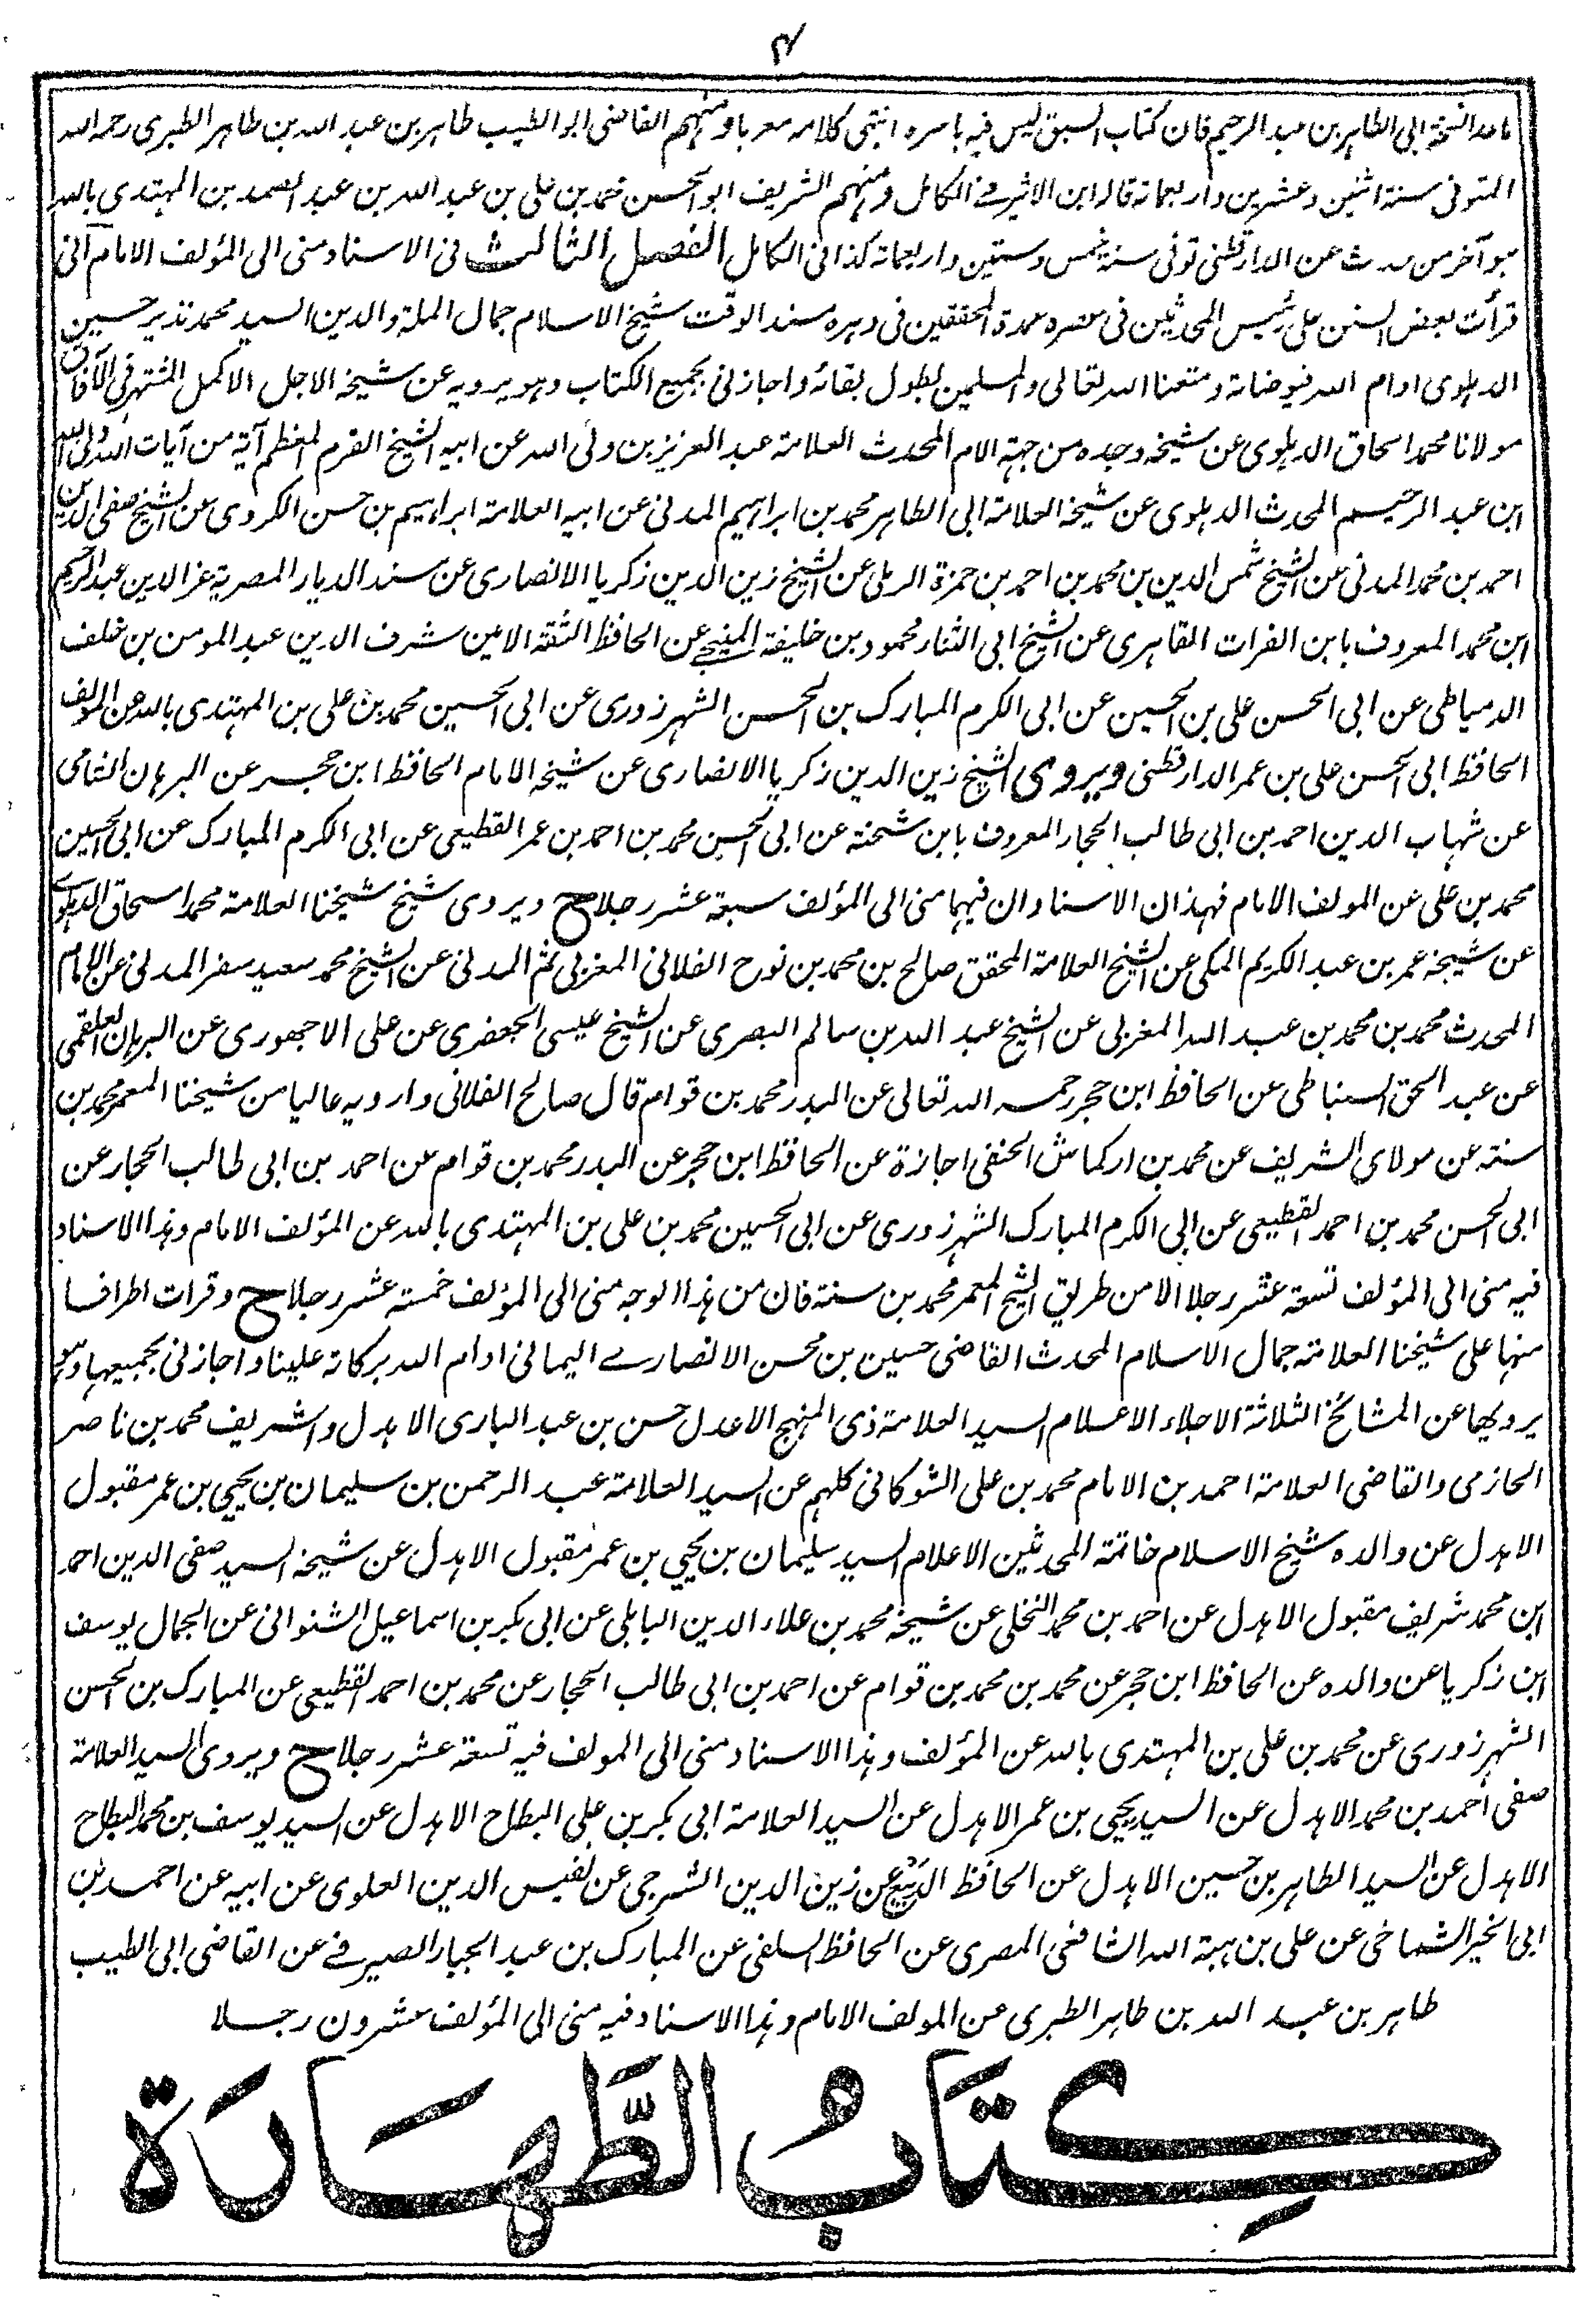 ۴
ماعدا نسخة ابى الطاهر بن عبد الرحيم فان كتاب السبق ليس فيه باسره انتهى كلامه معربا ومنهم القاضى ابو الطيب طاهر بن عبد الله بن طاهر الطبرى رحمه الله
المتوفى سنة اثنين وعشرين واربعمائة قاله ابن الاثير فى الكامل ومنهم الشريف ابو الحسن محمد بن على بن عبد الله بن عبد الصمد بن المهتدى بالله
هو آخر من حدث عن الدارقطنى توفى سنة خمس وستين واربعمائة كذا فى الكامل الفصل الثالث فى الاسناد منى الى المؤلف الامام انى
قرأت بعض السنن على رئيس المحدثين فى عصره عمدة المحققين فى دهره سند الوقت شيخ الاسلام جمال الملة والدين السيد محمد نذير حسين
الدهلوى ادام الله فيوضاته ومتعنا الله تعالى والمسلمين بطول بقائه واجازنى بجميع الكتاب وهو يرويه عن شيخه الاجل الاكمل المشتهر فى الآفاق
مولانا محمد اسحاق الدهلوى عن شيخه وجده من جهة الام المحدث العلامة عبد العزيز بن ولى الله عن ابيه الشيخ القرم المعظم آية من آيات الله ولى الله
ابن عبد الرحيم المحدث الدهلوى عن شيخه العلامة ابى الطاهر محمد بن ابراهيم المدنى عن ابيه العلامة ابراهيم بن حسن الكردى عن الشيخ صفى الدين
احمد بن محمد المدنى عن الشيخ شمس الدين بن محمد بن احمد بن حمزة الرملى عن الشيخ زين الدين زكريا الانصارى عن سند الديار المصرية عز الدين عبد الرحيم
ابن محمد المعروف بابن الفرات القاهرى عن الشيخ ابى الثناء محمود بن خليفة المنبجى عن الحافظ الثقة الامين شرف الدين عبد المومن بن خلف
الدمياطى عن ابى الحسن على بن الحسين عن ابى الكرم المبارك بن الحسن الشهرزورى عن ابى الحسين محمد بن على بن المهتدى بالله عن المولف
الحافظ ابى الحسن على بن عمر الدارقطنى ويروى الشيخ زين الدين زكريا الانصارى عن شيخه الامام الحافظ ابن حجر عن البرهان الشامى
عن شهاب الدين احمد بن ابى طالب الحجار المعروف بابن شحنة عن ابى الحسن محمد بن احمد بن عمر القطيعى عن ابى الكرم المبارك عن ابى الحسين
محمد بن على عن المولف الامام فهذان الاسنادان فيهما منى الى المؤلف سبعة عشر رجلا ح ويروى شيخ شيخنا العلامة محمد اسحاق الدهلوى
عن شيخه عمر بن عبد الكريم المكى عن الشيخ العلامة المحقق صالح بن محمد بن نوح الفلانى المغربى ثم المدنى عن الشيخ محمد سعيد سفر المدنى عن الامام
المحدث محمد بن محمد بن عبد الله المغربى عن الشيخ عبد الله بن سالم البصرى عن الشيخ عيسى الجعفرى عن على الاجهورى عن البرهان العلقمى
عن عبد الحق السنباطى عن الحافظ ابن حجر رحمه الله تعالى عن البدر محمد بن قوام قال صالح الفلانى وارويه عاليا من شيخنا المعمر محمد بن
سنة عن مولاى الشريف عن محمد بن اركماش الحنفى اجازة عن الحافظ ابن حجر عن البدر محمد بن قوام عن احمد بن ابى طالب الحجار عن
ابى الحسن محمد بن احمد القطيعى عن ابى الكرم المبارك الشهرزورى عن ابى الحسين محمد بن على بن المهتدى بالله عن المؤلف الامام وهذا الاسناد
فيه منى الى المؤلف تسعة عشر رجلا الا من طريق الشيخ المعمر محمد بن سنة فان من هذا الوجه منى الى المؤلف خمسة عشر رجلا ح وقرات اطرافا
منها على شيخنا العلامة جمال الاسلام المحدث القاضى حسين بن محسن الانصارى اليمانى ادام الله بركاته علينا واجازنى بجميعها وهو
يرويها عن المشائخ الثلاثة الاجلاء الاعلام السيد العلامة ذى المنهج الاعدل حسن بن عبد البارى الاهدل والشريف محمد بن ناصر
الحازمى والقاضى العلامة احمد بن الامام محمد بن على الشوكانى كلهم عن السيد العلامة عبد الرحمن بن سليمان بن يحيى بن عمر مقبول
الاهدل عن والده شيخ الاسلام خاتمة المحدثين الاعلام السيد سليمان بن يحيى بن عمر مقبول الاهدل عن شيخه السيد صفى الدين احمد
ابن محمد شريف مقبول الاهدل عن احمد بن محمد النخلى عن شيخه محمد بن علاء الدين البابلى عن ابى بكر بن اسماعيل الشنوانى عن الجمال يوسف
ابن زكريا عن والده عن الحافظ ابن حجر عن محمد بن محمد بن قوام عن احمد بن ابى طالب الحجار عن محمد بن احمد القطيعى عن المبارك بن الحسن
الشهرزورى عن محمد بن على بن المهتدى بالله عن المؤلف وهذا الاسناد منى الى المولف فيه تسعة عشر رجلا ح ويروى السيد العلامة
صفى احمد بن محمد الاهدل عن السيد يحيى بن عمر الاهدل عن السيد العلامة ابى بكر بن على البطاح الاهدل عن السيد يوسف بن محمد البطاح
الاهدل عن السيد الطاهر بن حسين الاهدل عن الحافظ الديبع عن زين الدين الشرجى عن نفيس الدين العلوى عن ابيه عن احمد بن
ابى الخير الشماخى عن على بن هبة الله الشافعى المصرى عن الحافظ السلفى عن المبارك بن عبد الجبار الصيرفى عن القاضى ابى الطيب
طاهر بن عبد الله بن طاهر الطبرى عن المولف الامام وهذا الاسناد فيه منى الى المؤلف عشرون رجلا
كِتَابُ الطَّهَارَة